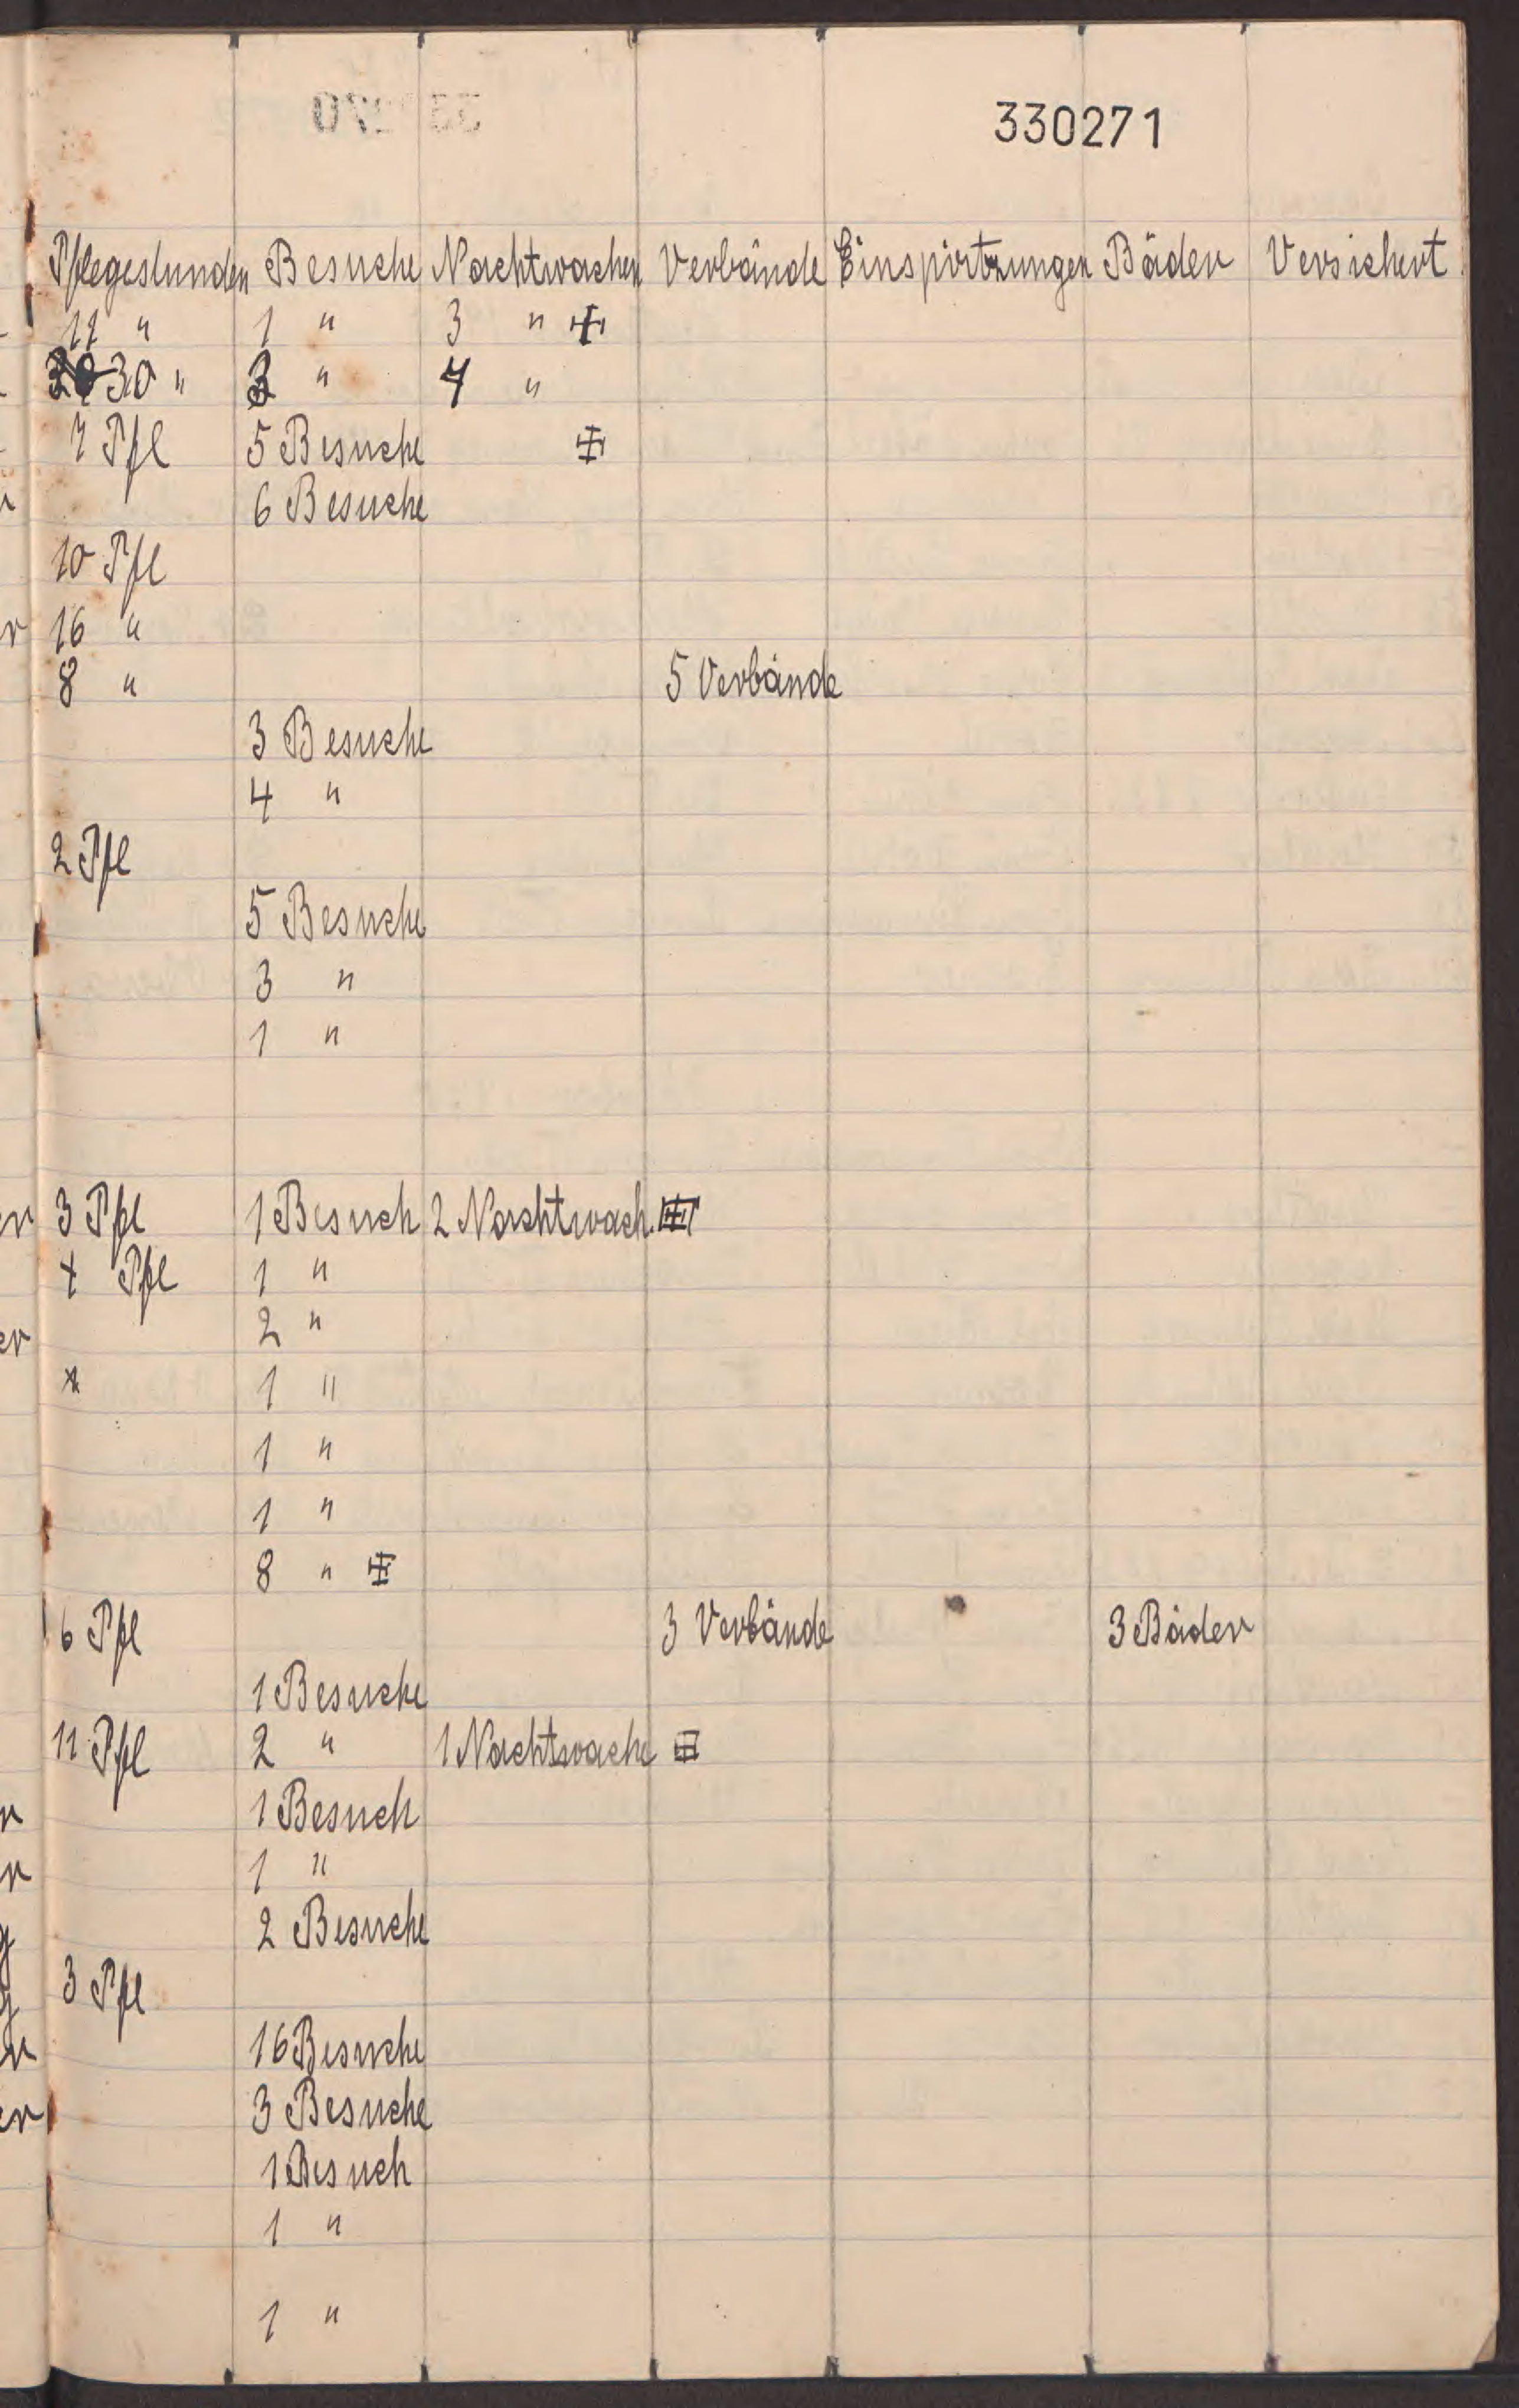 330271
Pflegestunden Besuche Nachtwachen Verbände Einspirtzungen Bäder Versichert
11 " 1 " 3 "
30 " 3 " 4 "
7 Pfl 5 Besuche
6 Besuche
10 Pfl
16 "
8 " 5 Verbände
3 Besuche
4 "
2 Pfl
5 Besuche
3 "
1 "
3 Pfl 1 Besuch 2 Nachtwach.
Pfl 1 "
2 "
1 "
1 "
1 "
8 "
6 Pfl 3 Verbände 3 Bäder
1 Besuche
11 Pfl 2 " 1 Nachtwache
1 Besuch
1 "
2 Besuche
3 Pfl
16 Besuche
3 Besuche
1 Besuch
1 "
1 "